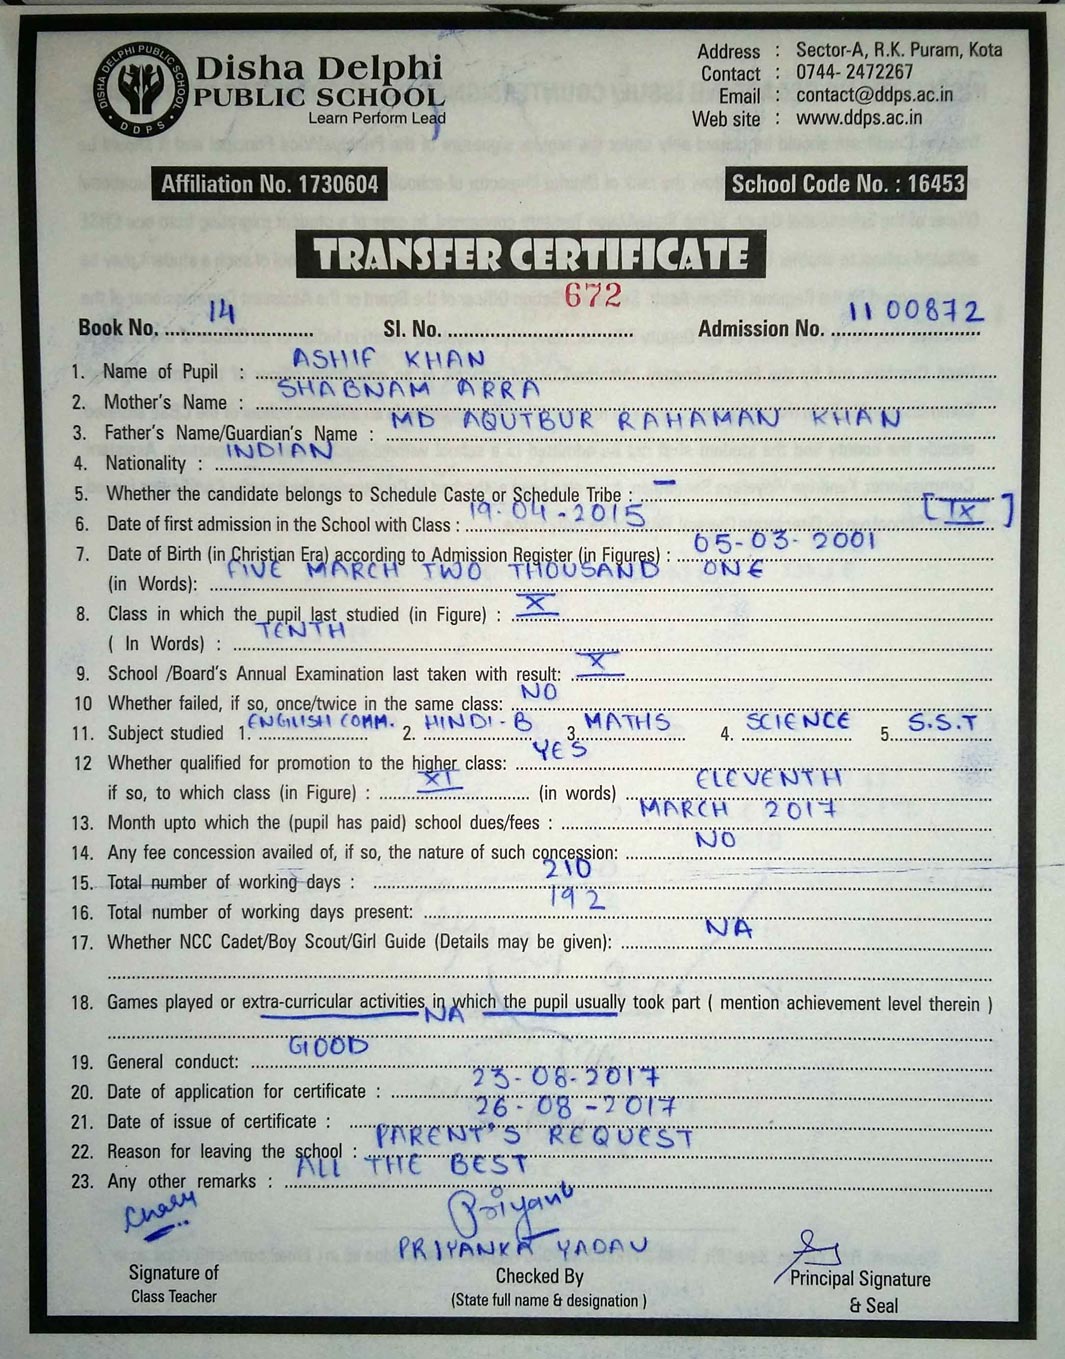 DISHA DELPHI PUBLIC SCHOOL
DDPS
Disha Delphi
PUBLIC SCHOOL
Learn Perform Lead
Address : Sector-A, R.K. Puram, Kota
Contact : 0744- 2472267
Email : contact@ddps.ac.in
Web site : www.ddps.ac.in
Affiliation No. 1730604 School Code No. : 16453
TRANSFER CERTIFICATE
672
Book No. 14 Sl. No. Admission No. 1100872
1. Name of Pupil : ASHIF KHAN
2. Mother's Name : SHABNAM ARRA
3. Father's Name/Guardian's Name : MD AQUTBUR RAHAMAN KHAN
4. Nationality : INDIAN
5. Whether the candidate belongs to Schedule Caste or Schedule Tribe : –
6. Date of first admission in the School with Class : 19-04-2015 [IX]
7. Date of Birth (in Christian Era) according to Admission Register (in Figures) : 05-03-2001
(in Words): FIVE MARCH TWO THOUSAND ONE
8. Class in which the pupil last studied (in Figure) : X
( In Words) : TENTH
9. School /Board's Annual Examination last taken with result: X
10 Whether failed, if so, once/twice in the same class: NO
11. Subject studied 1. ENGLISH COMM. 2. HINDI-B 3. MATHS 4. SCIENCE 5. S.S.T
12 Whether qualified for promotion to the higher class: YES
if so, to which class (in Figure) : XI (in words) ELEVENTH
13. Month upto which the (pupil has paid) school dues/fees : MARCH 2017
14. Any fee concession availed of, if so, the nature of such concession: NO
15. Total number of working days : 210
16. Total number of working days present: 192
17. Whether NCC Cadet/Boy Scout/Girl Guide (Details may be given): NA
18. Games played or extra-curricular activities in which the pupil usually took part ( mention achievement level therein )
NA
19. General conduct: GOOD
20. Date of application for certificate : 23-08-2017
21. Date of issue of certificate : 26-08-2017
22. Reason for leaving the school : PARENT'S REQUEST
23. Any other remarks : ALL THE BEST
Priyanka
PRIYANKA YADAV
Signature of Checked By Principal Signature
Class Teacher (State full name & designation ) & Seal